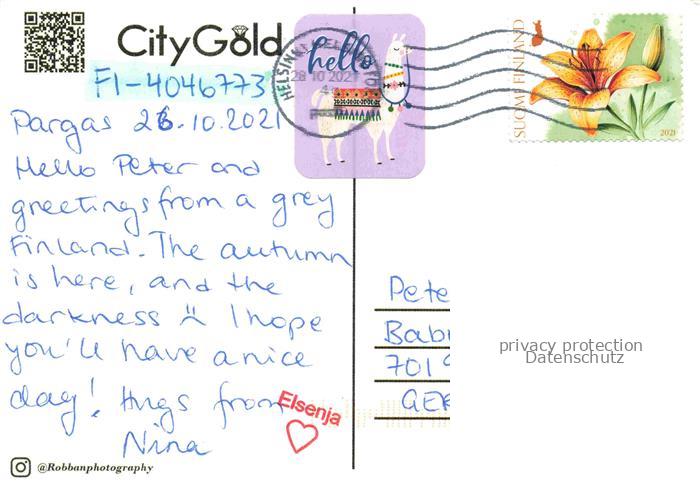 CityGold
FI-4046773
Pargas 26.10.2021
Hello Peter and
greetings from a grey
Finland. The autumn
is here, and the
darkness :( I hope
you'll have a nice
day! Hugs from
Nina
Elsenja
@Robbanphotography
hello
HELSINKI HELSINGFORS
28 10 2021
SUOMI FINLAND
2021
Pete
Bab
701
GER
privacy protection
Datenschutz